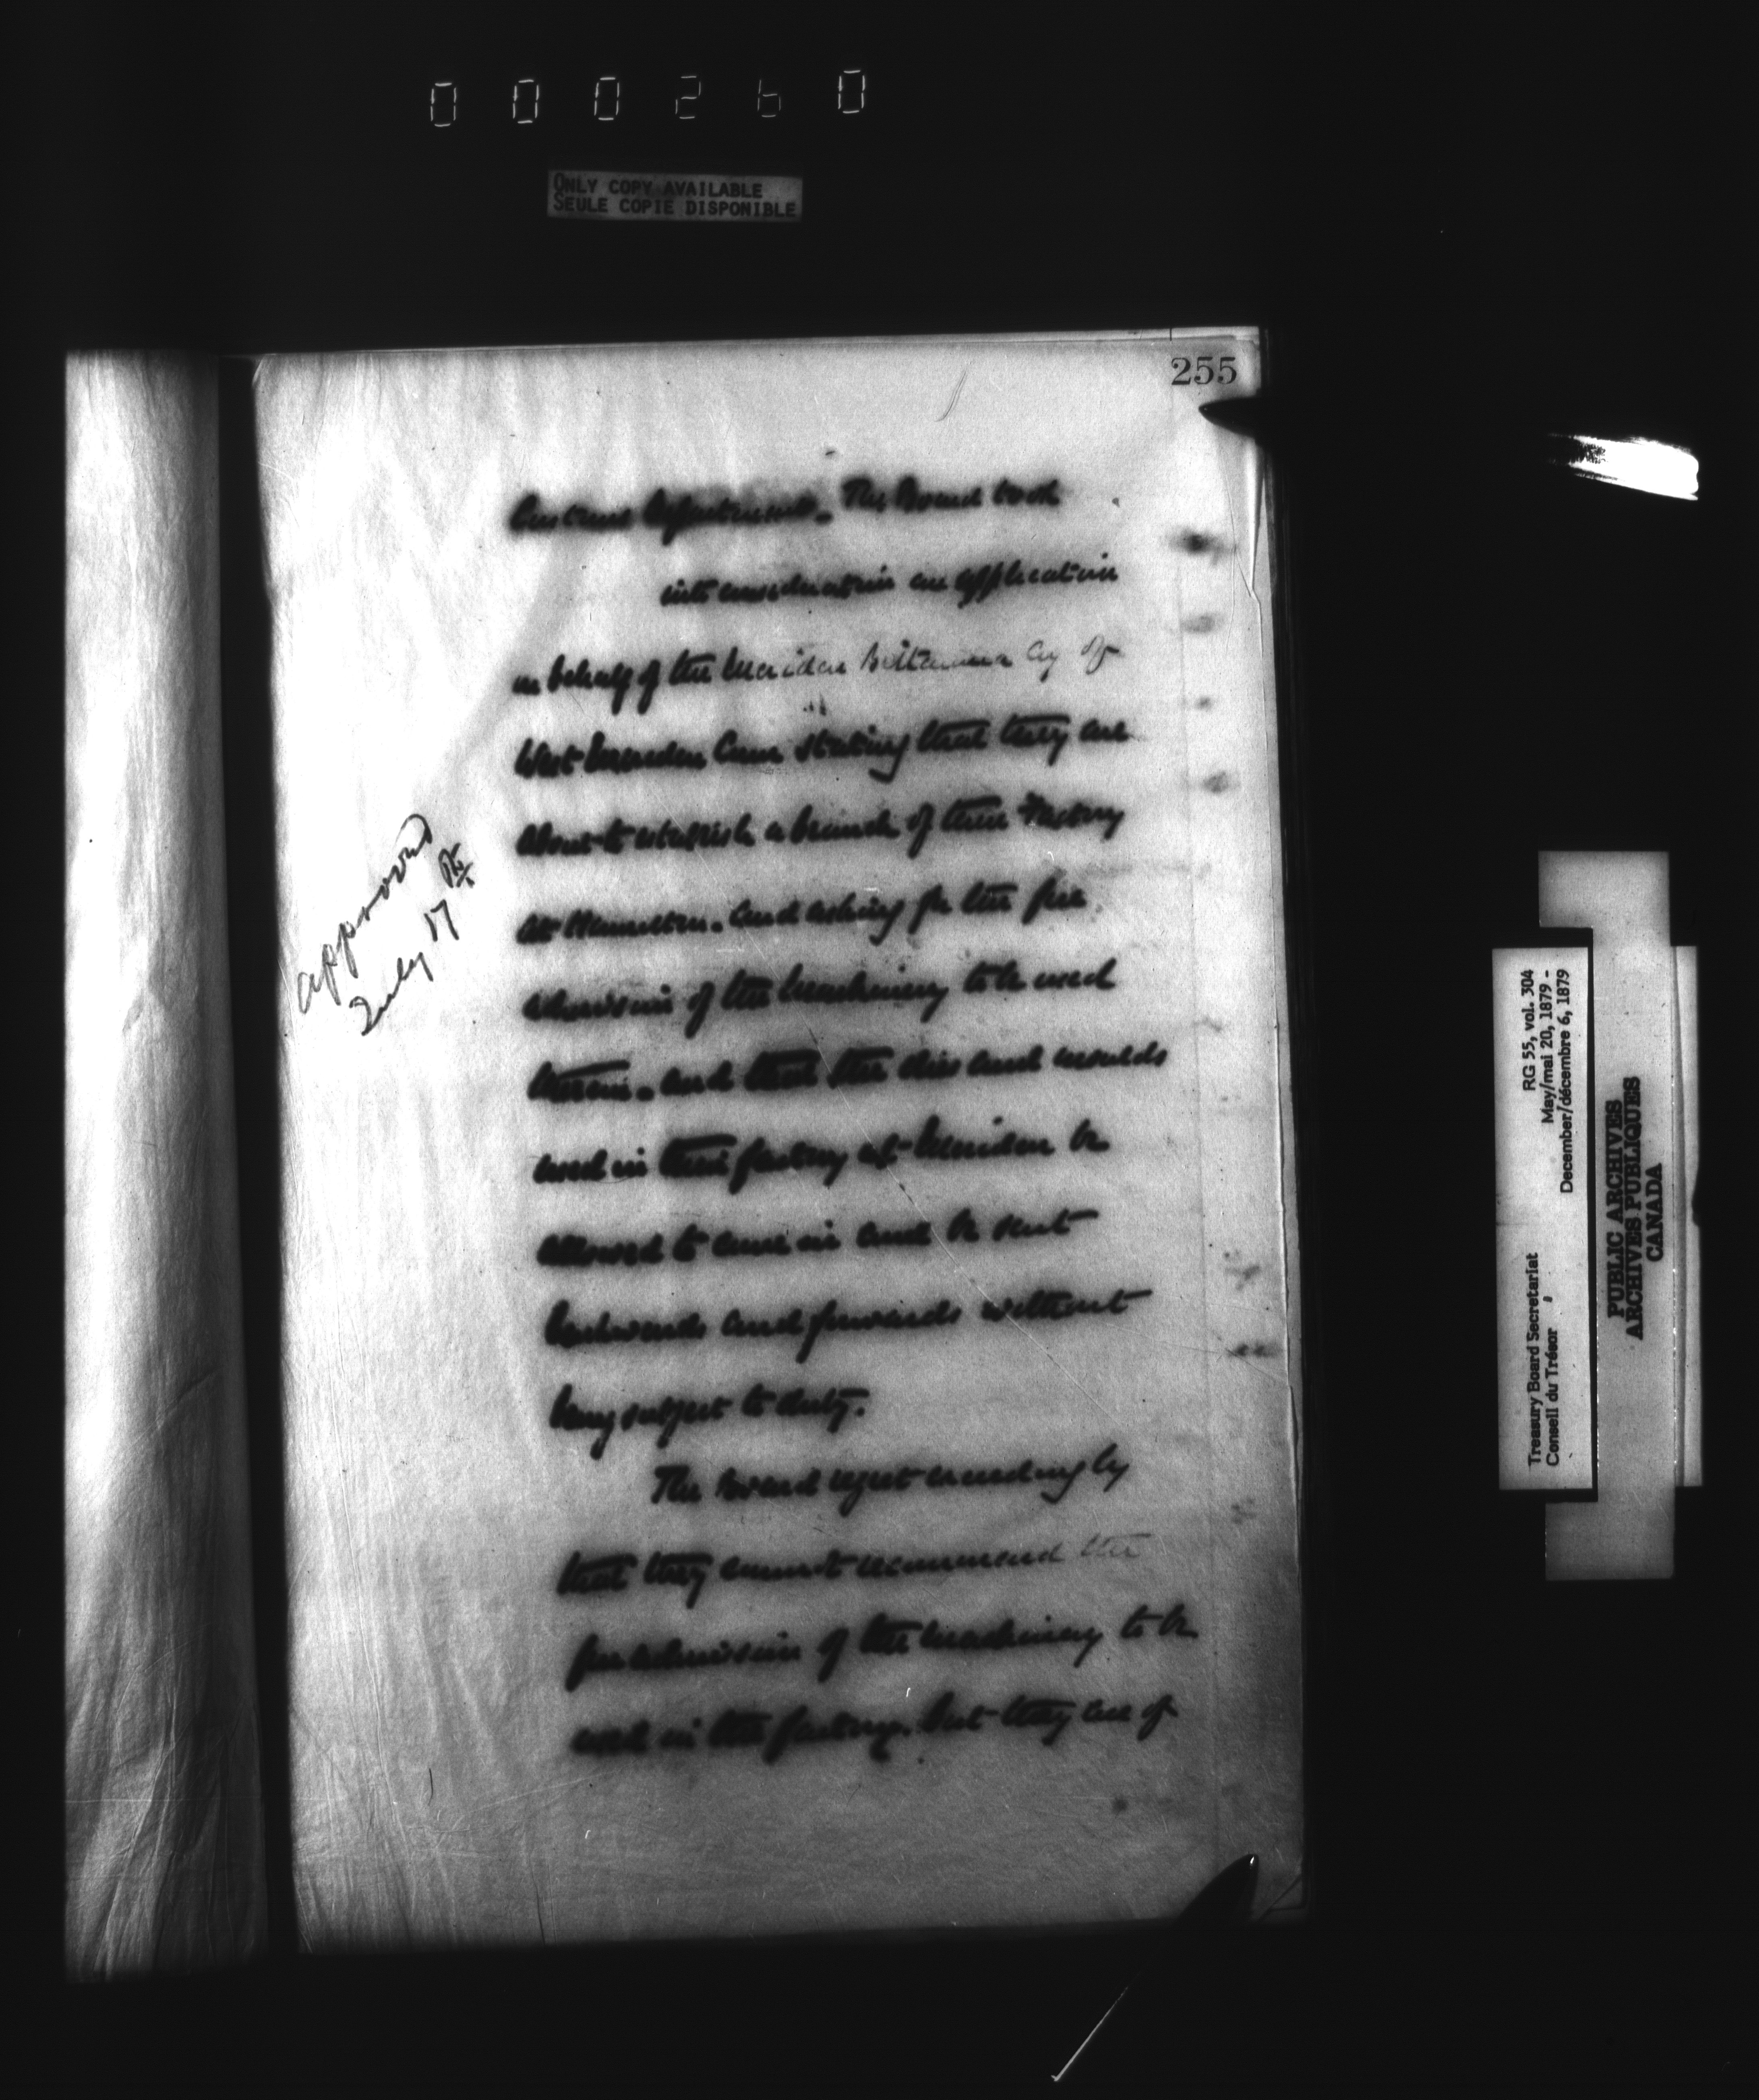 000260
ONLY COPY AVAILABLE
SEULE COPIE DISPONIBLE
255
Customs Department. The Board took
into consideration an application
on behalf of the Meriden Brittannia Coy of
West Meriden Conn stating that they are
about to establish a branch of their Factory
at Hamilton. and asking for the free
admission of the machinery to be used
therein. and that the dies and moulds
used in their factory at Meriden be
allowed to come in and be sent
backwards and forwards without
being subject to duty.
The Board regret exceedingly
that they cannot recommend the
free admission of the machinery to be
used in the factory. but they are of
approved
July 17th
RG 55, vol. 304
May/mai 20, 1879 -
December/décembre 6, 1879
Treasury Board Secretariat
Conseil du Trésor "
PUBLIC ARCHIVES
ARCHIVES PUBLIQUES
CANADA